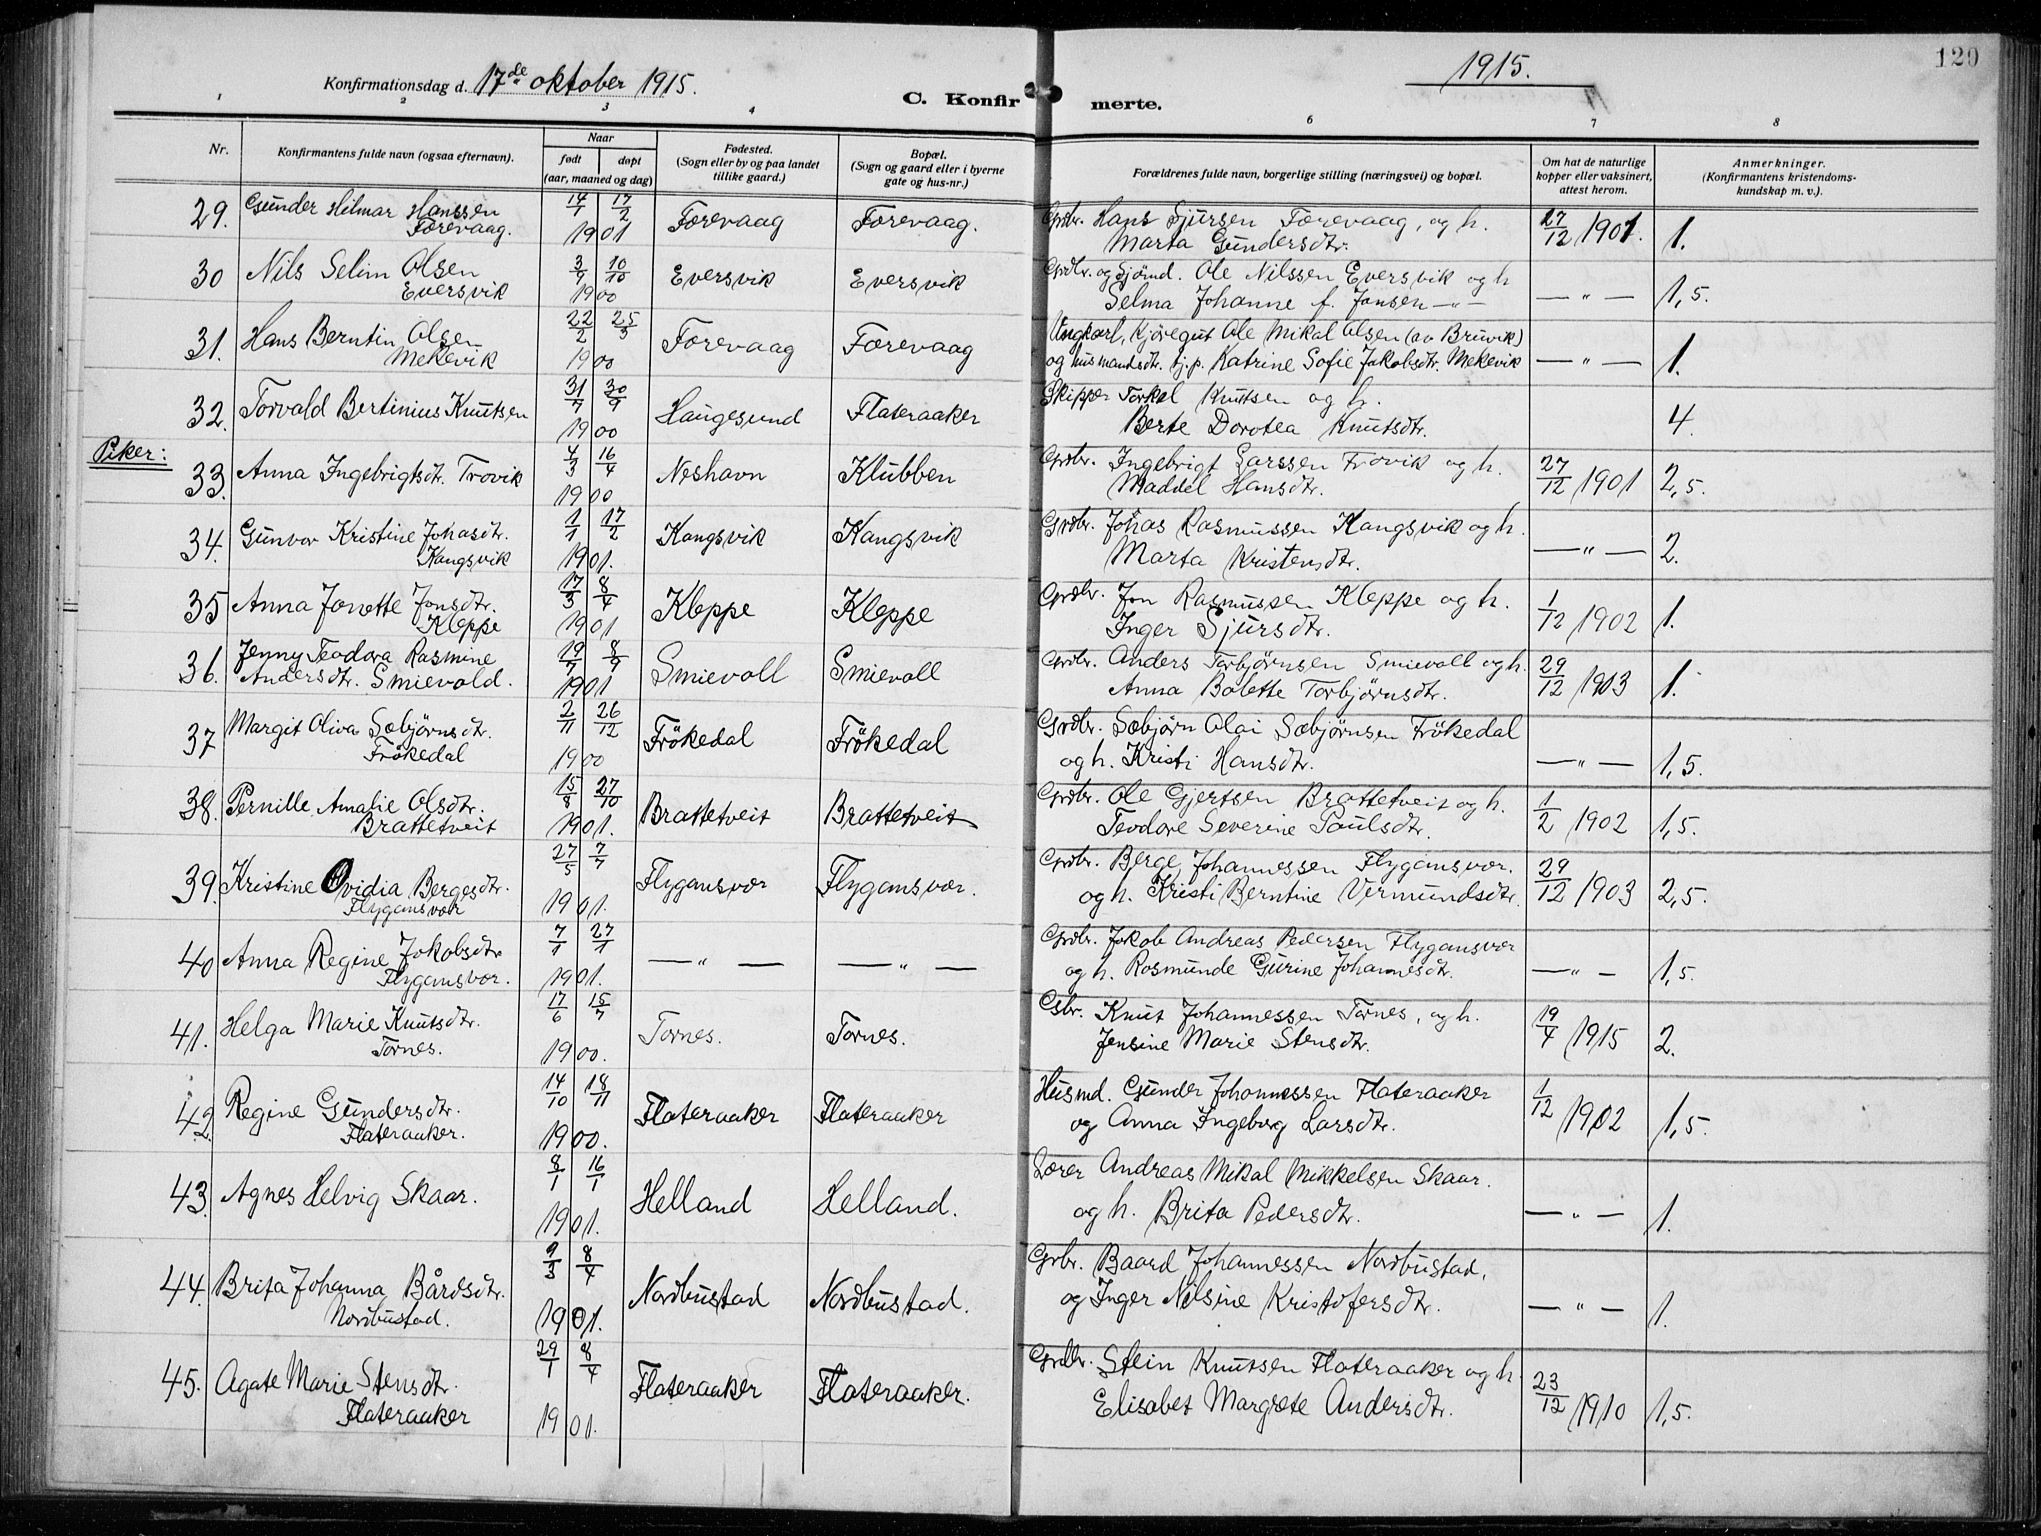 1915.
120
Konfirmationsdag d. 17de oktober 1915.
C. Konfirmerte.
1 2 3 4 6 7 8
Nr.
Konfirmantens fulde navn (ogsaa efternavn).
Naar
født døpt
(aar, maaned og dag)
Fødested.
(Sogn eller by og paa landet
tillike gaard.)
Bopæl.
(Sogn og gaard eller i byerne
gate og hus-nr.)
Forældrenes fulde navn, borgerlige stilling (næringsvei) og bopæl.
Om hat de naturlige
kopper eller vaksinert,
attest herom.
Anmerkninger.
(Konfirmantens kristendoms-
kundskap m. v.).
29. Gunder Hilmar Hanssen 14/1 17/2 Forevaag Forevaag. Grdbr. Hans Sjursen Forevaag, og h. 27/12 1901. 1.
Forevaag. 1901 Marta Gundersdtr.
30 Nils Selim Olsen 3/9 10/10 Eversvik Eversvik Grdbr. og Sjömd. Ole Nilssen Eversvik og h — " — 1,5.
Eversvik 1900 Selma Johanne f. Jansen — " —
31. Hans Berntin Olsen 22/2 25/3 Forevaag Forevaag Ungkarl, Kjøregut Ole Mikal Olsen (av Bruvik) — " — 1.
Mekevik 1900 og husmandsdtr. tj.p. Katrine Sofie Jakobsdtr. Mekevik
32. Torvald Bertinius Knutsen 31/7 30/9 Haugesund Flateraaker Skipper Torkel Knutsen og h. 4.
1900 Berte Dorotea Knutsdtr.
Piker:
33. Anna Ingebrigtsdtr. Trovik 4/3 16/4 Neshavn Klubben Grdbr. Ingebrigt Larssen Trovik og h. 27/12 1901 2,5.
1900 Maddel Hansdtr.
34. Gunvor Kristine Johasdtr. 1/1 17/2 Kangsvik Kangsvik Grdbr. Johas Rasmussen Kangsvik og h. — " — 2.
Kangsvik 1901. Marta Kristensdtr.
35 Anna Jonette Jonsdtr. 17/3 8/4 Kleppe Kleppe Grdbr. Jon Rasmussen Kleppe og h. 1/12 1902 1.
Kleppe 1901 Inger Sjursdtr.
36. Jenny Teodora Rasmine 19/7 8/9 Smievoll Smievoll Grdbr. Anders Torbjørnsen Smievoll og h. 29/12 1903 1.
Andersdtr. Smievold. 1901 Anna Bolette Torbjørnsdtr.
37 Margit Oliva Sæbjörnsdtr. 2/11 26/12 Frökedal Frökedal Grdbr. Sæbjørn Olai Sæbjørnsen Frökedal — " — 1,5.
Frökedal 1900 og h. Kristi Hansdtr.
38. Pernille Amalie Olsdtr. 15/8 27/10 Brattetveit Brattetveit Grdbr. Ole Gjertsen Brattetveit og h. 1/2 1902 1,5.
Brattetveit 1901. Teodore Severine Paulsdtr.
39. Kristine Ovidia Bergesdtr. 27/5 7/7 Flygansvær Flygansvær. Grdbr. Berge Johannessen Flygansvær. 29/12 1903 2,5.
Flygansvær 1901. og h. Kristi Berntine Vermundsdtr.
40 Anna Regine Jakobsdtr 7/1 27/1 — " — — " — Grdbr. Jakob Andreas Pedersen Flygansvær — " — 1,5.
Flygansvær. 1901. og h. Rasmunde Gurine Johannesdtr.
41. Helga Marie Knutsdtr. 17/6 15/7 Tornes. Tornes. Gsbr. Knut Johannessen Tornes, og h. 19/4 1915 2.
Tornes. 1900. Jensine Marie Stensdtr.
42. Regine Gundersdtr. 14/10 18/11 Flateraaker Flateraaker Husmd. Gunder Johannessen Flateraaker 1/12 1902 1,5.
Flateraaker. 1900. og Anna Ingeborg Larsdtr.
43. Agnes Helvig Skaar. 8/1 16/1 Helland Helland. Lærer Andreas Mikal Mikkelsen Skaar. — " — 1.
1901. og h. Brita Pedersdtr.
44. Brita Johanna Bårdsdtr. 9/3 8/4 Nordbustad Nordbustad. Grbr. Baard Johannessen Nordbustad, — " — 1.
Nordbustad. 1901. og Inger Nilsine Kristofersdtr.
45. Agate Marie Stensdtr. 29/1 8/4 Flateraaker Flateraaker. Grdbr. Stein Knutsen Flateraaker og h. 23/12 1910 1,5.
Flateraaker 1901. Elisabet Margrete Andersdtr.